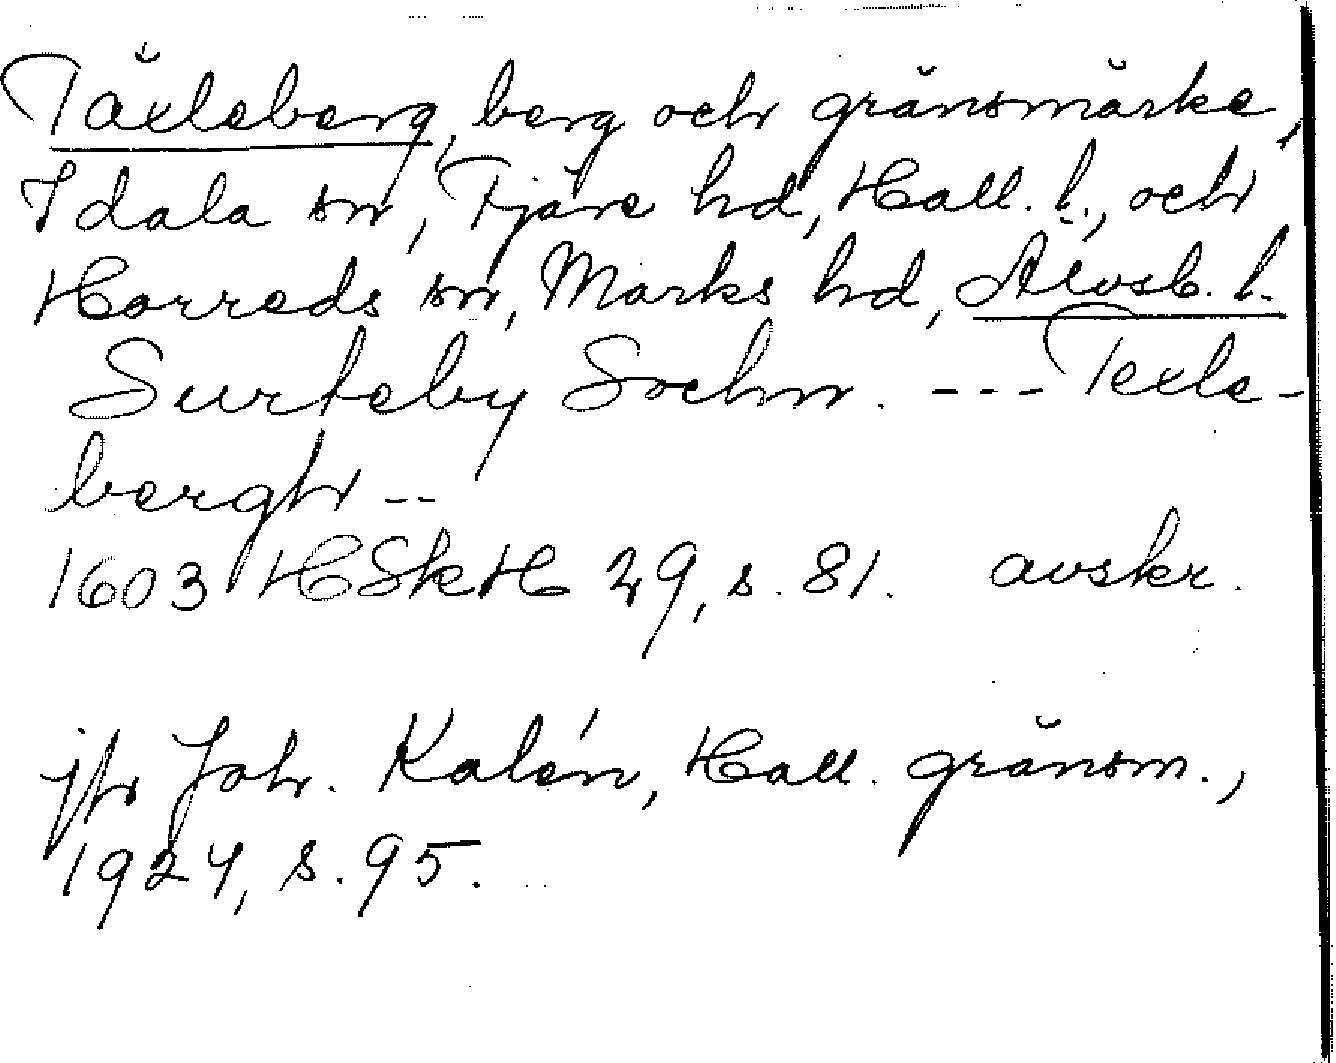 Täxleberg, berg och gränsmärke,
Idala sn, Fjäre hd, Hall. l., och
Horreds sn, Marks hd, Älvsb. l.
Surteby Sochn. --- Texle-
bergh --
1603 HSkH 29, s. 81. avskr.
jfr Joh. Kalén, Hall. gränsm.,
1924, s. 95.